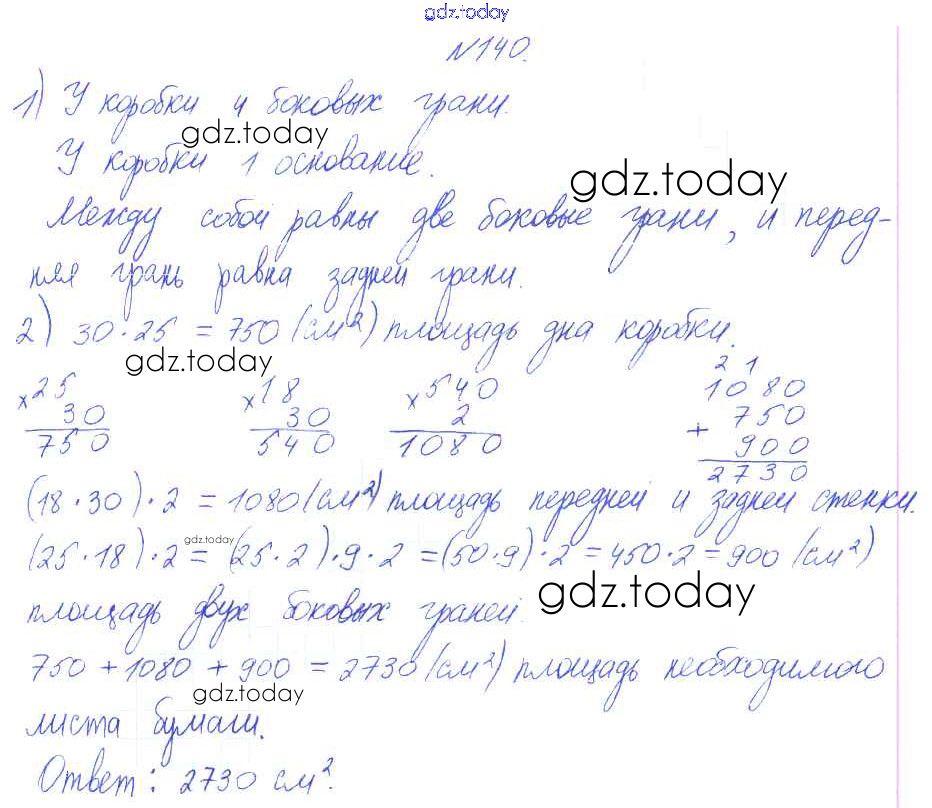 gdz.today
№140.
1) У коробки 4 боковых грани.
gdz.today
У коробки 1 основание.
gdz.today
Между собой равны две боковые грани, и перед-
няя грань равна задней грани.
2) 30·25 = 750 (см²) площадь дна коробки.
gdz.today
×25 ×18 ×540 2 1
30 30 2 1080
750 540 1080 + 750
900
2730
(18·30)·2 = 1080 (см²) площадь передней и задней стенки.
gdz.today
(25·18)·2 = (25·2)·9·2 = (50·9)·2 = 450·2 = 900 (см²)
gdz.today
площадь двух боковых граней.
750 + 1080 + 900 = 2730 (см²) площадь необходимого
gdz.today
листа бумаги.
Ответ: 2730 см².